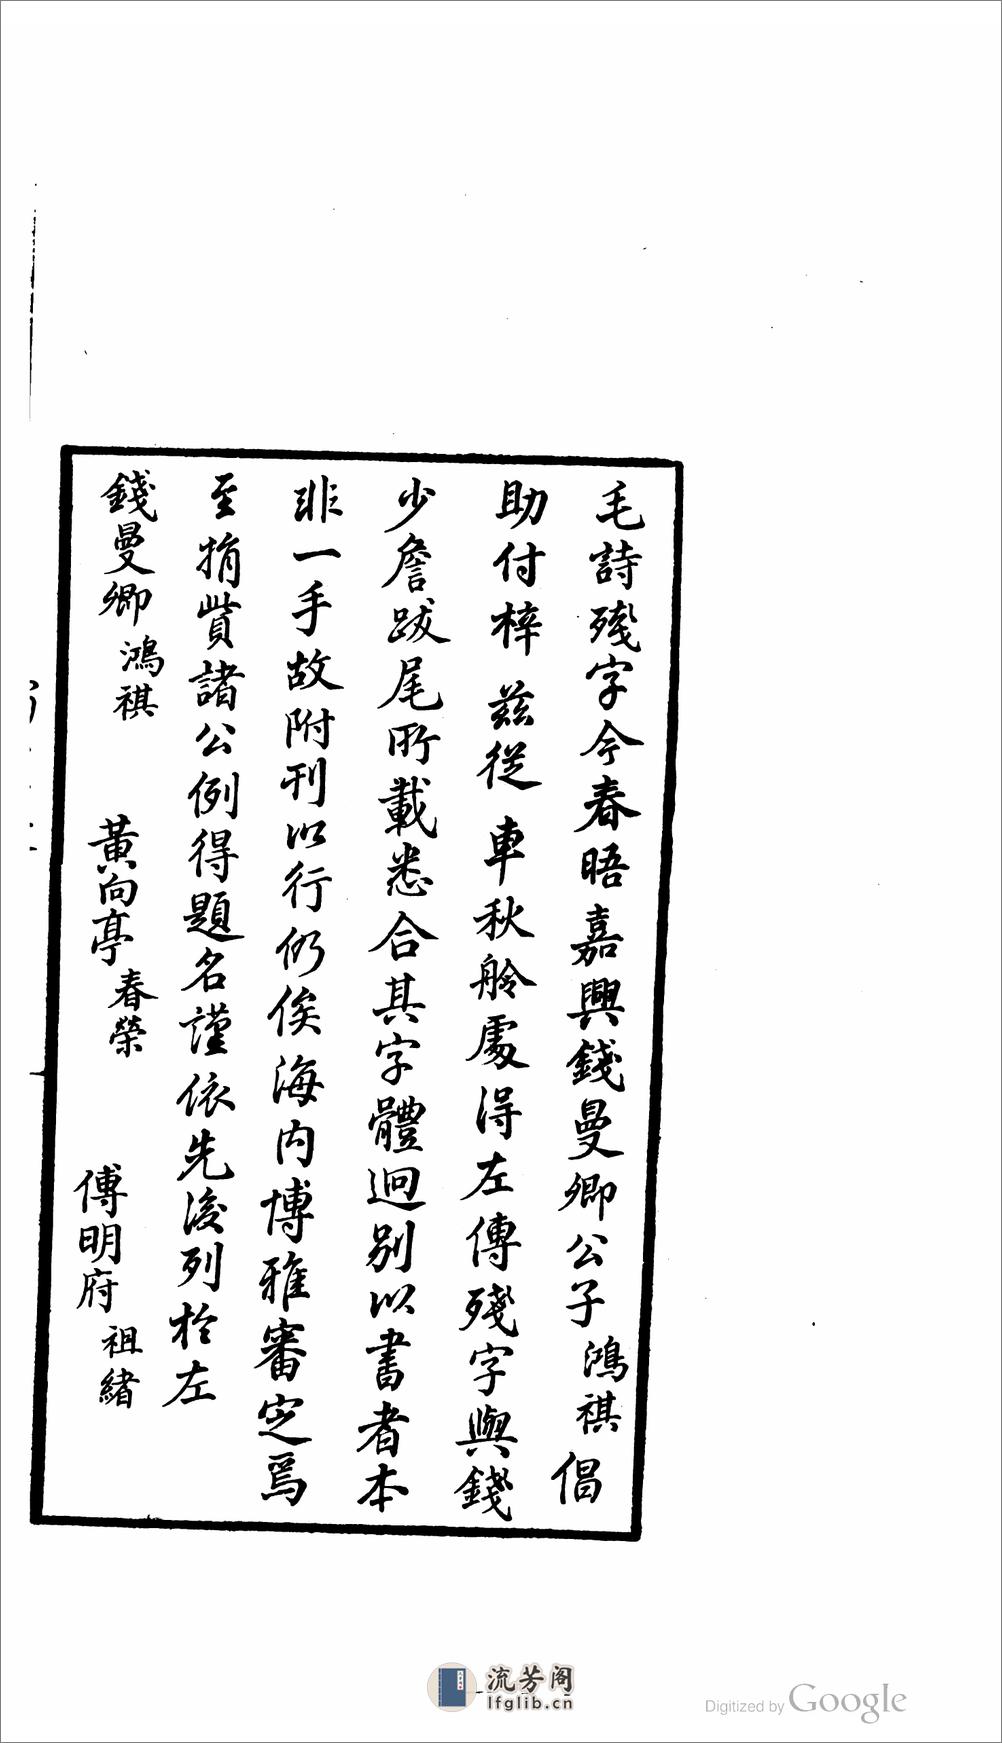 毛詩殘字今春晤嘉興錢曼卿公子鴻祺倡
助付梓茲從車秋舲處得左傳殘字與錢
少詹跋尾所載悉合其字體迥别以書者本
非一手故附刊以行仍俟海内博雅審定焉
至捐貲諸公例得題名謹依先後列於左
錢曼卿鴻祺 黃向亭春榮 傅明府祖緒
流芳阁
lfglib.cn
Digitized by Google